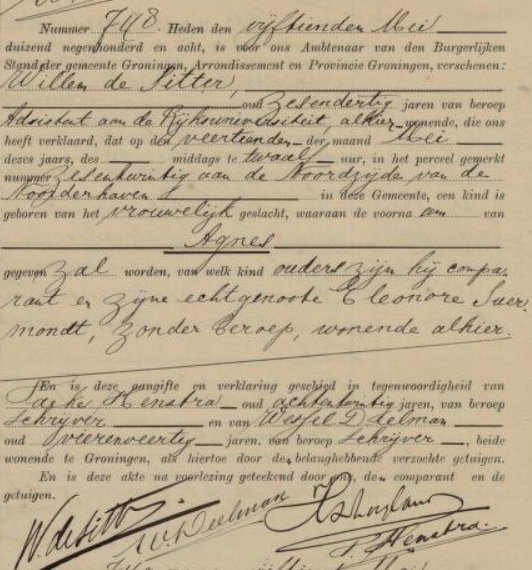 Nummer 748. Heden den vijftienden Mei
duizend negenhonderd en acht, is voor ons Ambtenaar van den Burgerlijken
Stand der gemeente Groningen, Arrondissement en Provincie Groningen, verschenen:
Willem de Sitter,
oud zesendertig jaren van beroep
Adsistent aan de Rijksuniversiteit, alhier wonende, die ons
heeft verklaard, dat op den veertienden der maand Mei
dezes jaars, des middags te twaalf uur, in het perceel gemerkt
nummer zesentwintig aan de Noordzijde van de
Noorderhaven in deze Gemeente, een kind is
geboren van het vrouwelijk geslacht, waaraan de voorna am van
Agnes
gegeven zal worden, van welk kind ouders zijn hij compa-
rant en zijne echtgenoote Eleonore Suer-
mondt, zonder beroep, wonende alhier.
En is deze aangifte en verklaring geschied in tegenwoordigheid van
Henstra oud achtentwintig jaren, van beroep
Schrijver en van Wessel Deelman
oud vierenveertig jaren, van beroep Schrijver, beide
wonende te Groningen, als hiertoe door de belanghebbende verzochte getuigen.
En is deze akte na voorlezing geteekend door ons, den comparant en de
getuigen.
W. de Sitter W. Deelman
Henstra.